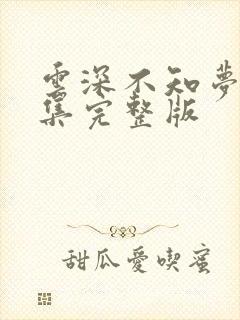 雲深不知夢
集完整版
甜瓜愛喫蜜